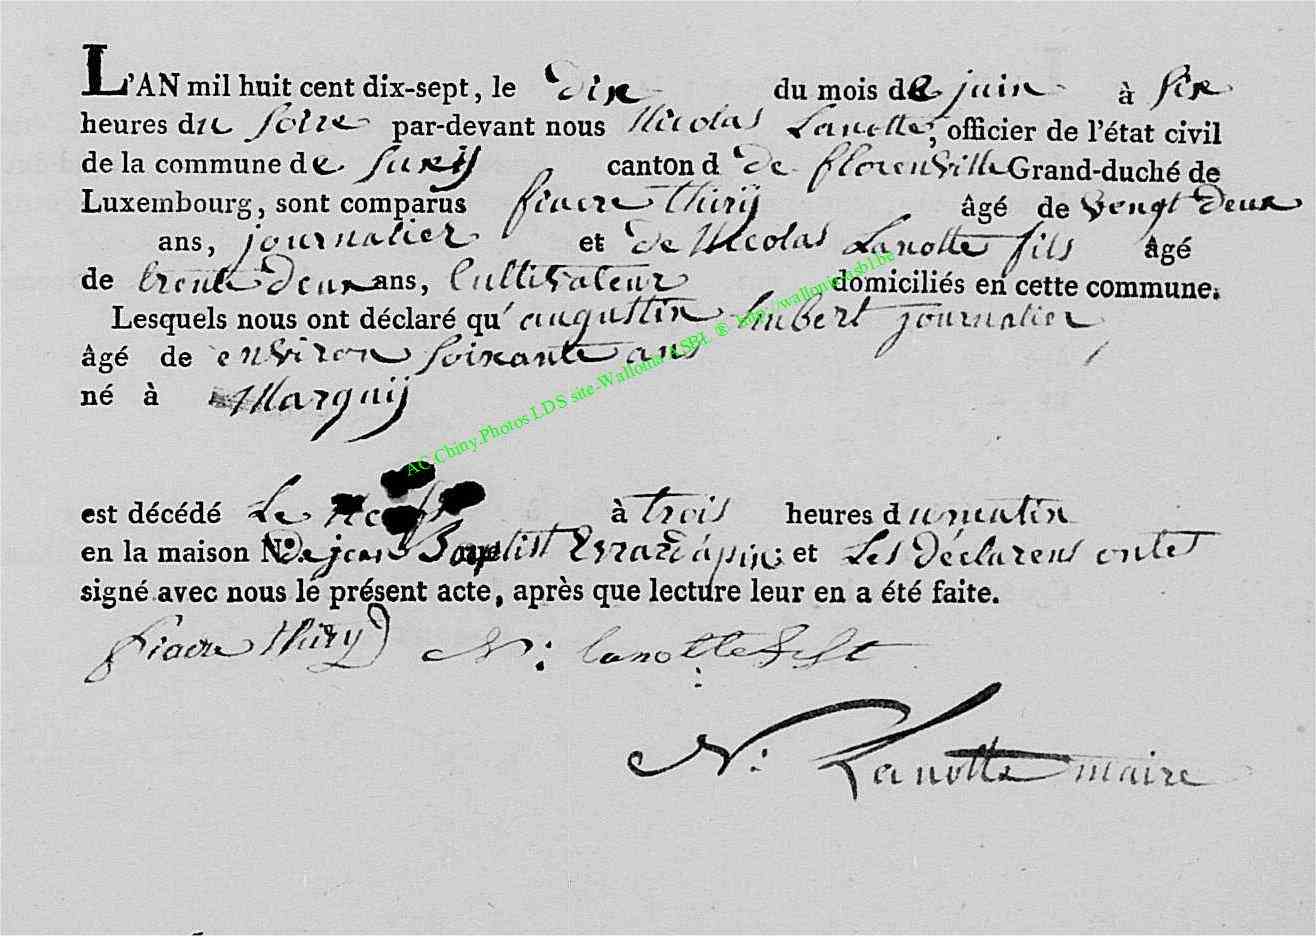 L'AN mil huit cent dix-sept, le dix du mois de juin à six
heures du soire par-devant nous Nicolas Lanotte, officier de l'état civil
de la commune de Suxÿ canton d de florenville Grand-duché de
Luxembourg, sont comparus fiacre thirÿ âgé de vengt deux
ans, journalier et de Nicolas Lanotte fils âgé
de trente deux ans, Cultivateur domiciliés en cette commune.
Lesquels nous ont déclaré qu'augustin Imbert journalier
âgé de environ soixante ans
né à Marguÿ
AC.Chiny.Photos LDS site-Wallonia ASBL ® http://walloniaasbl.be
est décédé Le à trois heures du matin
en la maison N.º de jean Baptist Evrard et Les déclarens ontet
signé avec nous le présent acte, après que lecture leur en a été faite.
fiacre thiry N: lanotte
N: Lanotte maire